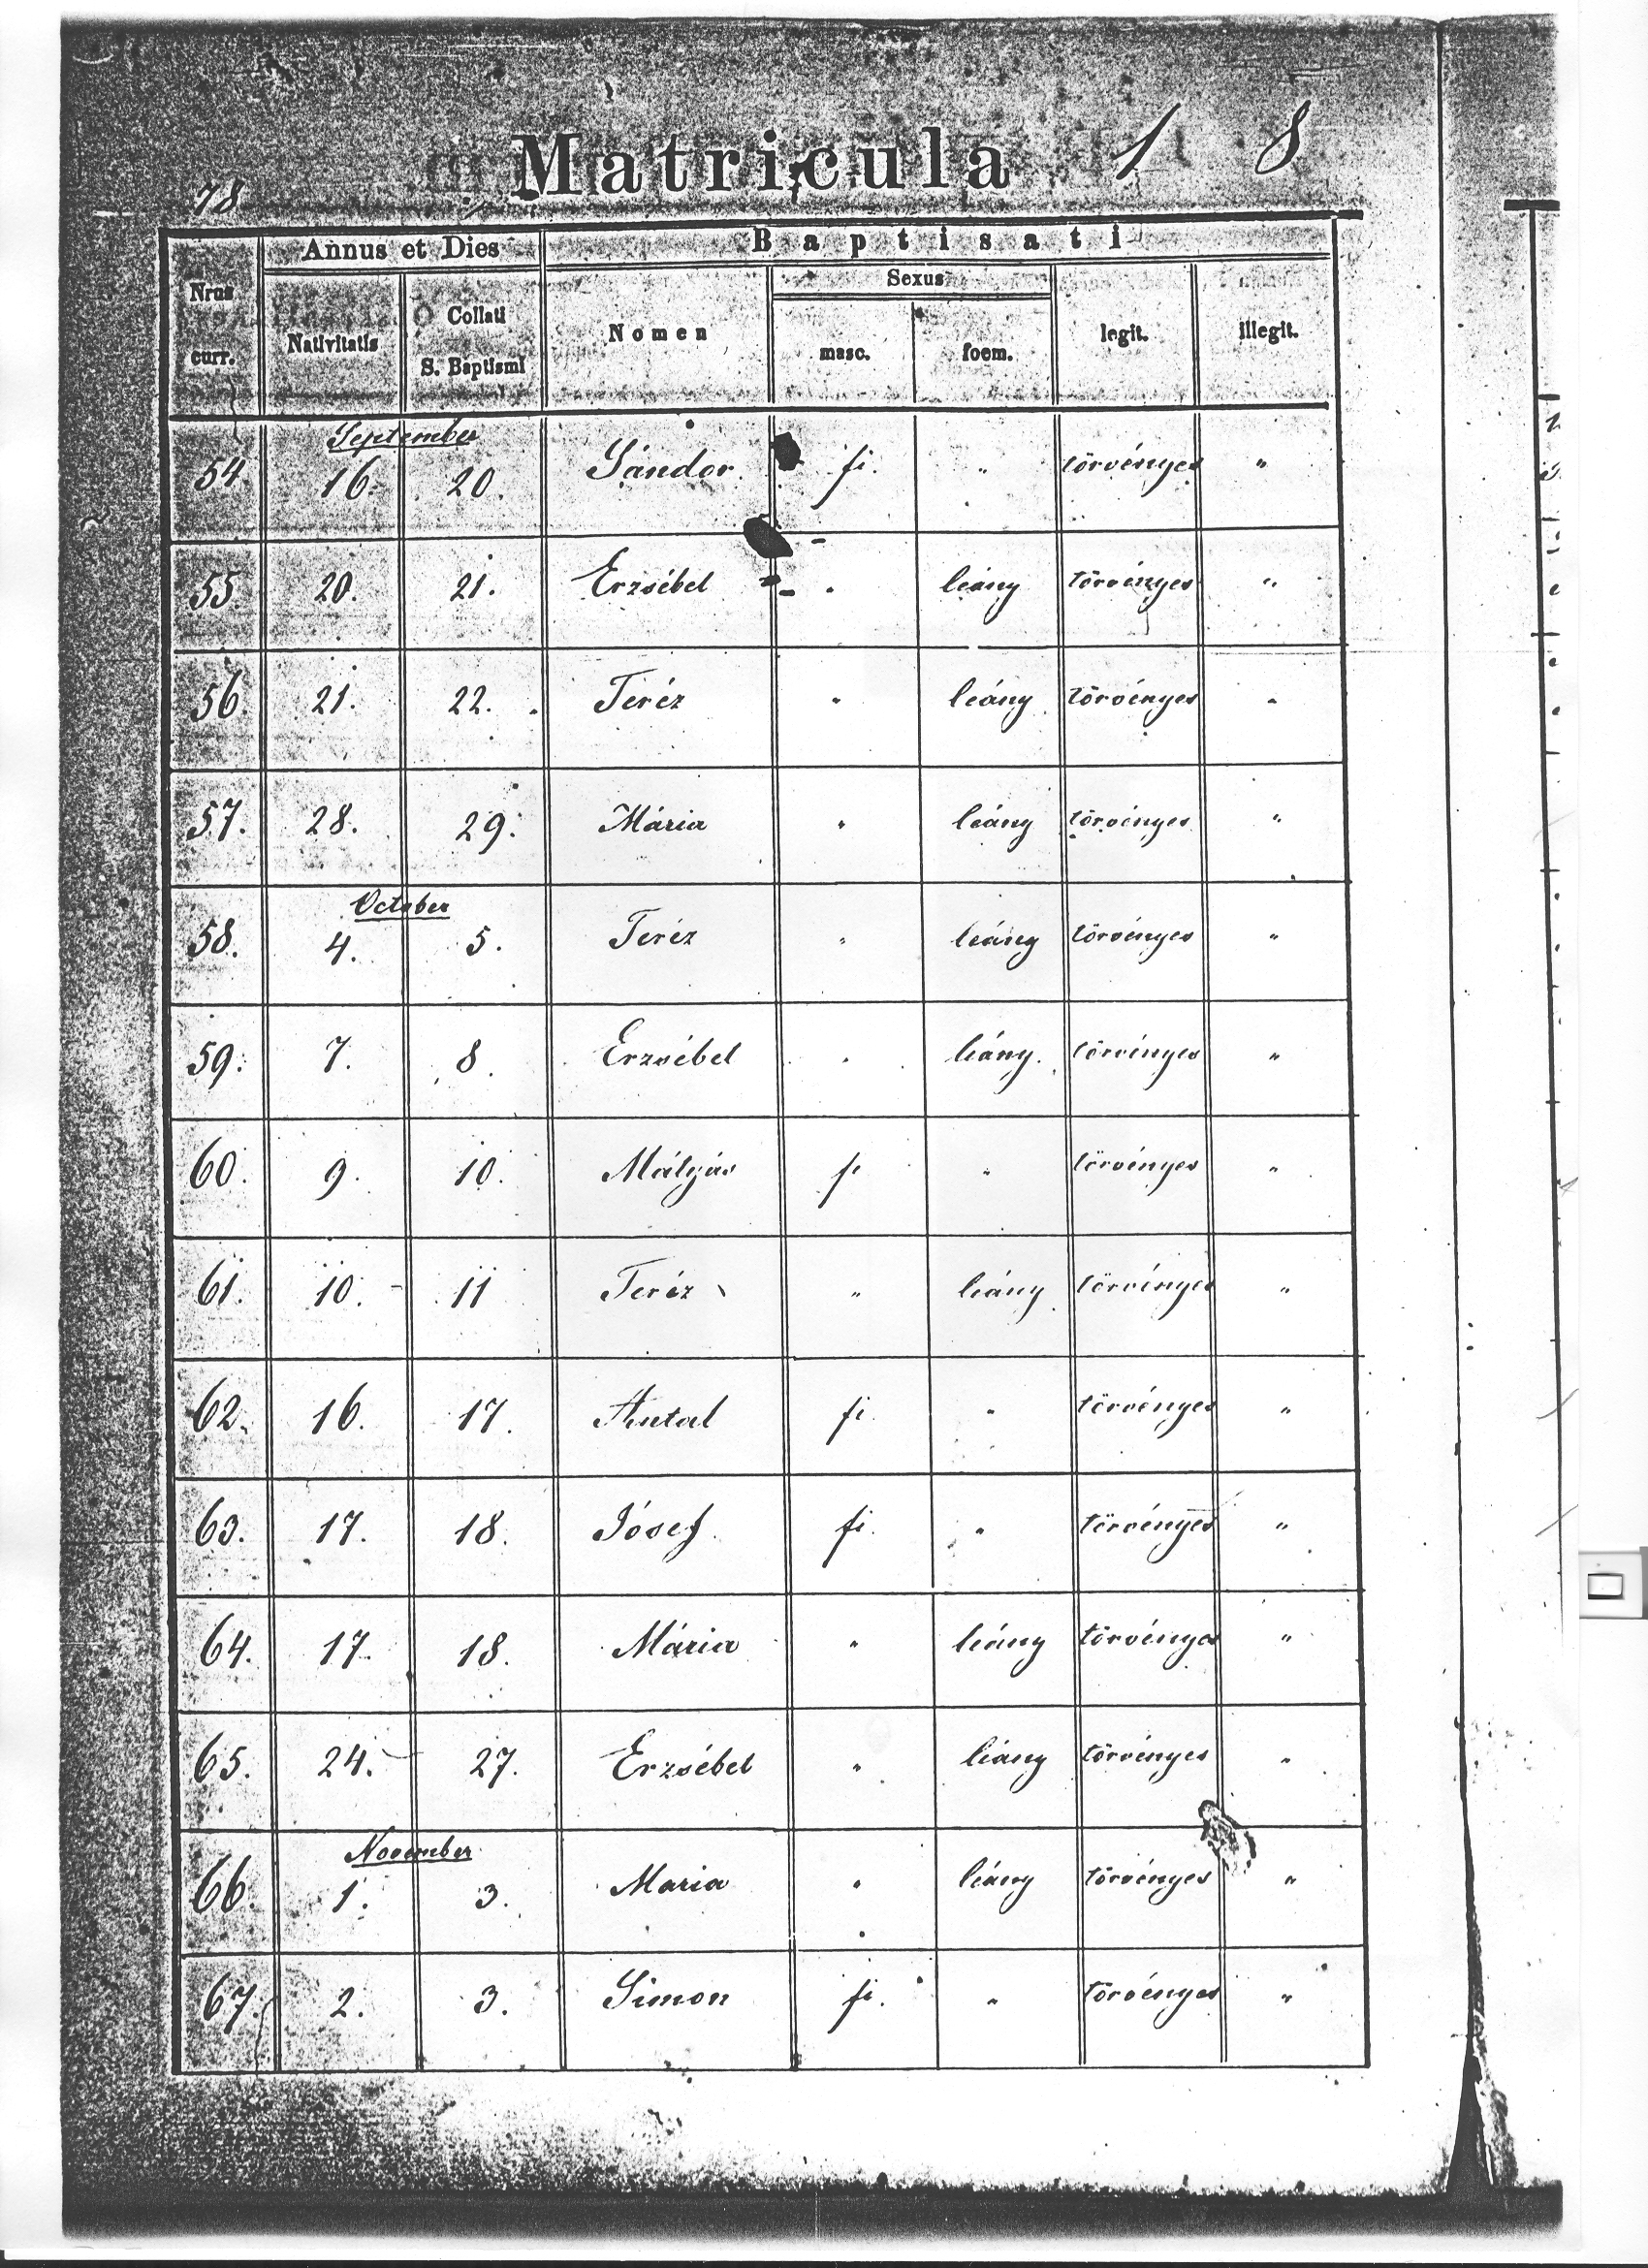 78
Matricula 1 8
Annus et Dies Baptisati
Nrus curr. Nativitatis Collati S. Baptismi Nomen Sexus legit. illegit.
masc. foem.
September
54. 16. 20. Sándor. fi. " törvényes "
55. 20. 21. Erzsébet " leány törvényes "
56. 21. 22. Teréz " leány törvényes "
57. 28. 29. Mária " leány törvényes "
October
58. 4. 5. Teréz " leány törvényes "
59. 7. 8. Erzsébet " leány. törvényes "
60. 9. 10. Mátyás fi " törvényes "
61. 10. 11 Teréz " leány törvényes "
62. 16. 17. Antal fi. " törvényes "
63. 17. 18. Jósef. fi. " törvényes "
64. 17. 18. Mária " leány törvényes "
65. 24. 27. Erzsébet " leány törvényes "
November
66. 1. 3. Maria " leány törvényes "
67. 2. 3. Simon fi. " törvényes "